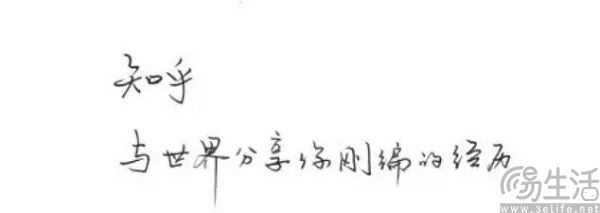 知乎
与世界分享你刚编的经历
易生活
www.3elife.net